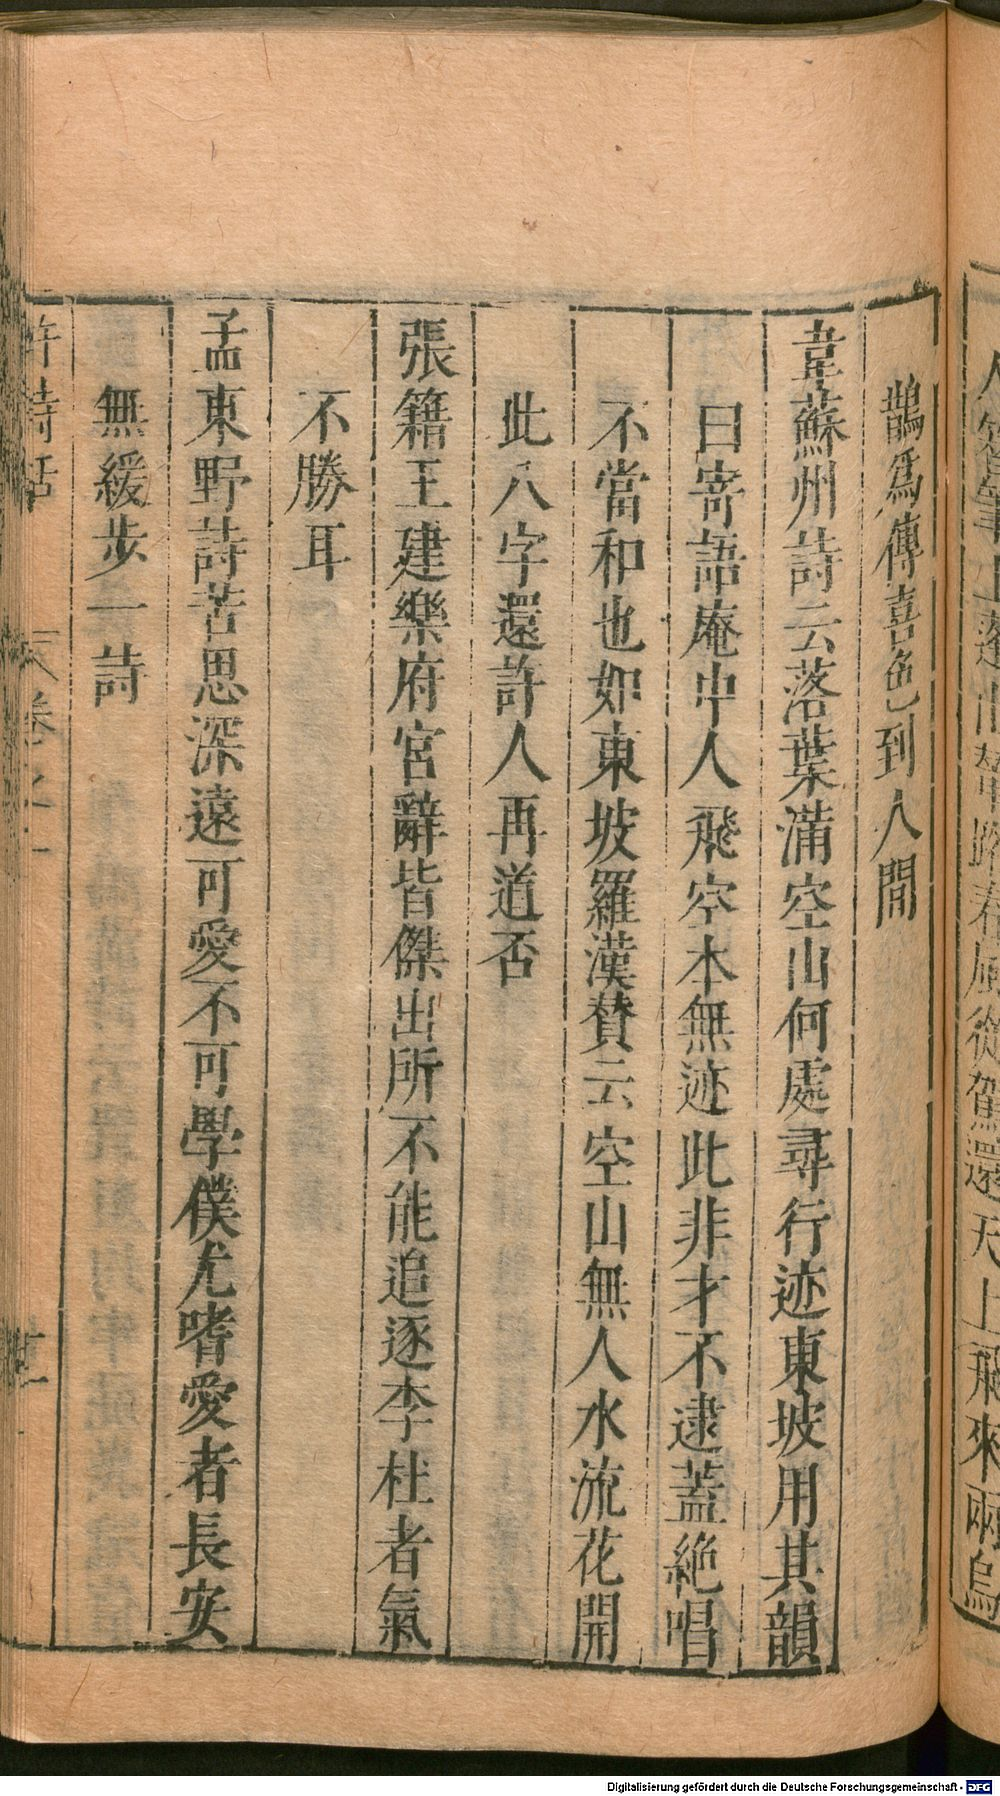 人從筆上蓬山警蹕春風從駕還天上飛來兩烏
鵲爲傳喜色到人間
韋蘇州詩云落葉滿空山何處尋行迹東坡用其韻
曰寄語庵中人飛空本無迹此非才不逮蓋絶唱
不當和也如東坡羅漢贊云空山無人水流花開
此八字還許人再道否
張籍王建樂府宮辭皆傑出所不能追逐李杜者氣
不勝耳
孟東野詩苦思深遠可愛不可學僕尤嗜愛者長安
無緩步一詩
許詩話 卷之一
Digitalisierung gefördert durch die Deutsche Forschungsgemeinschaft - DFG